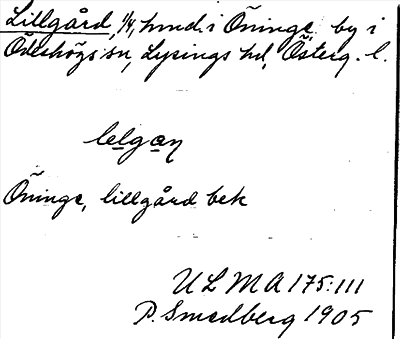 Lillgård, 1/4, hmd. i Öninge by i
Ödeshögs sn, Lysings hd, Österg. l.
lelgan
Öninge, lillgård bek
ULMA 175:111
P. Smedberg 1905